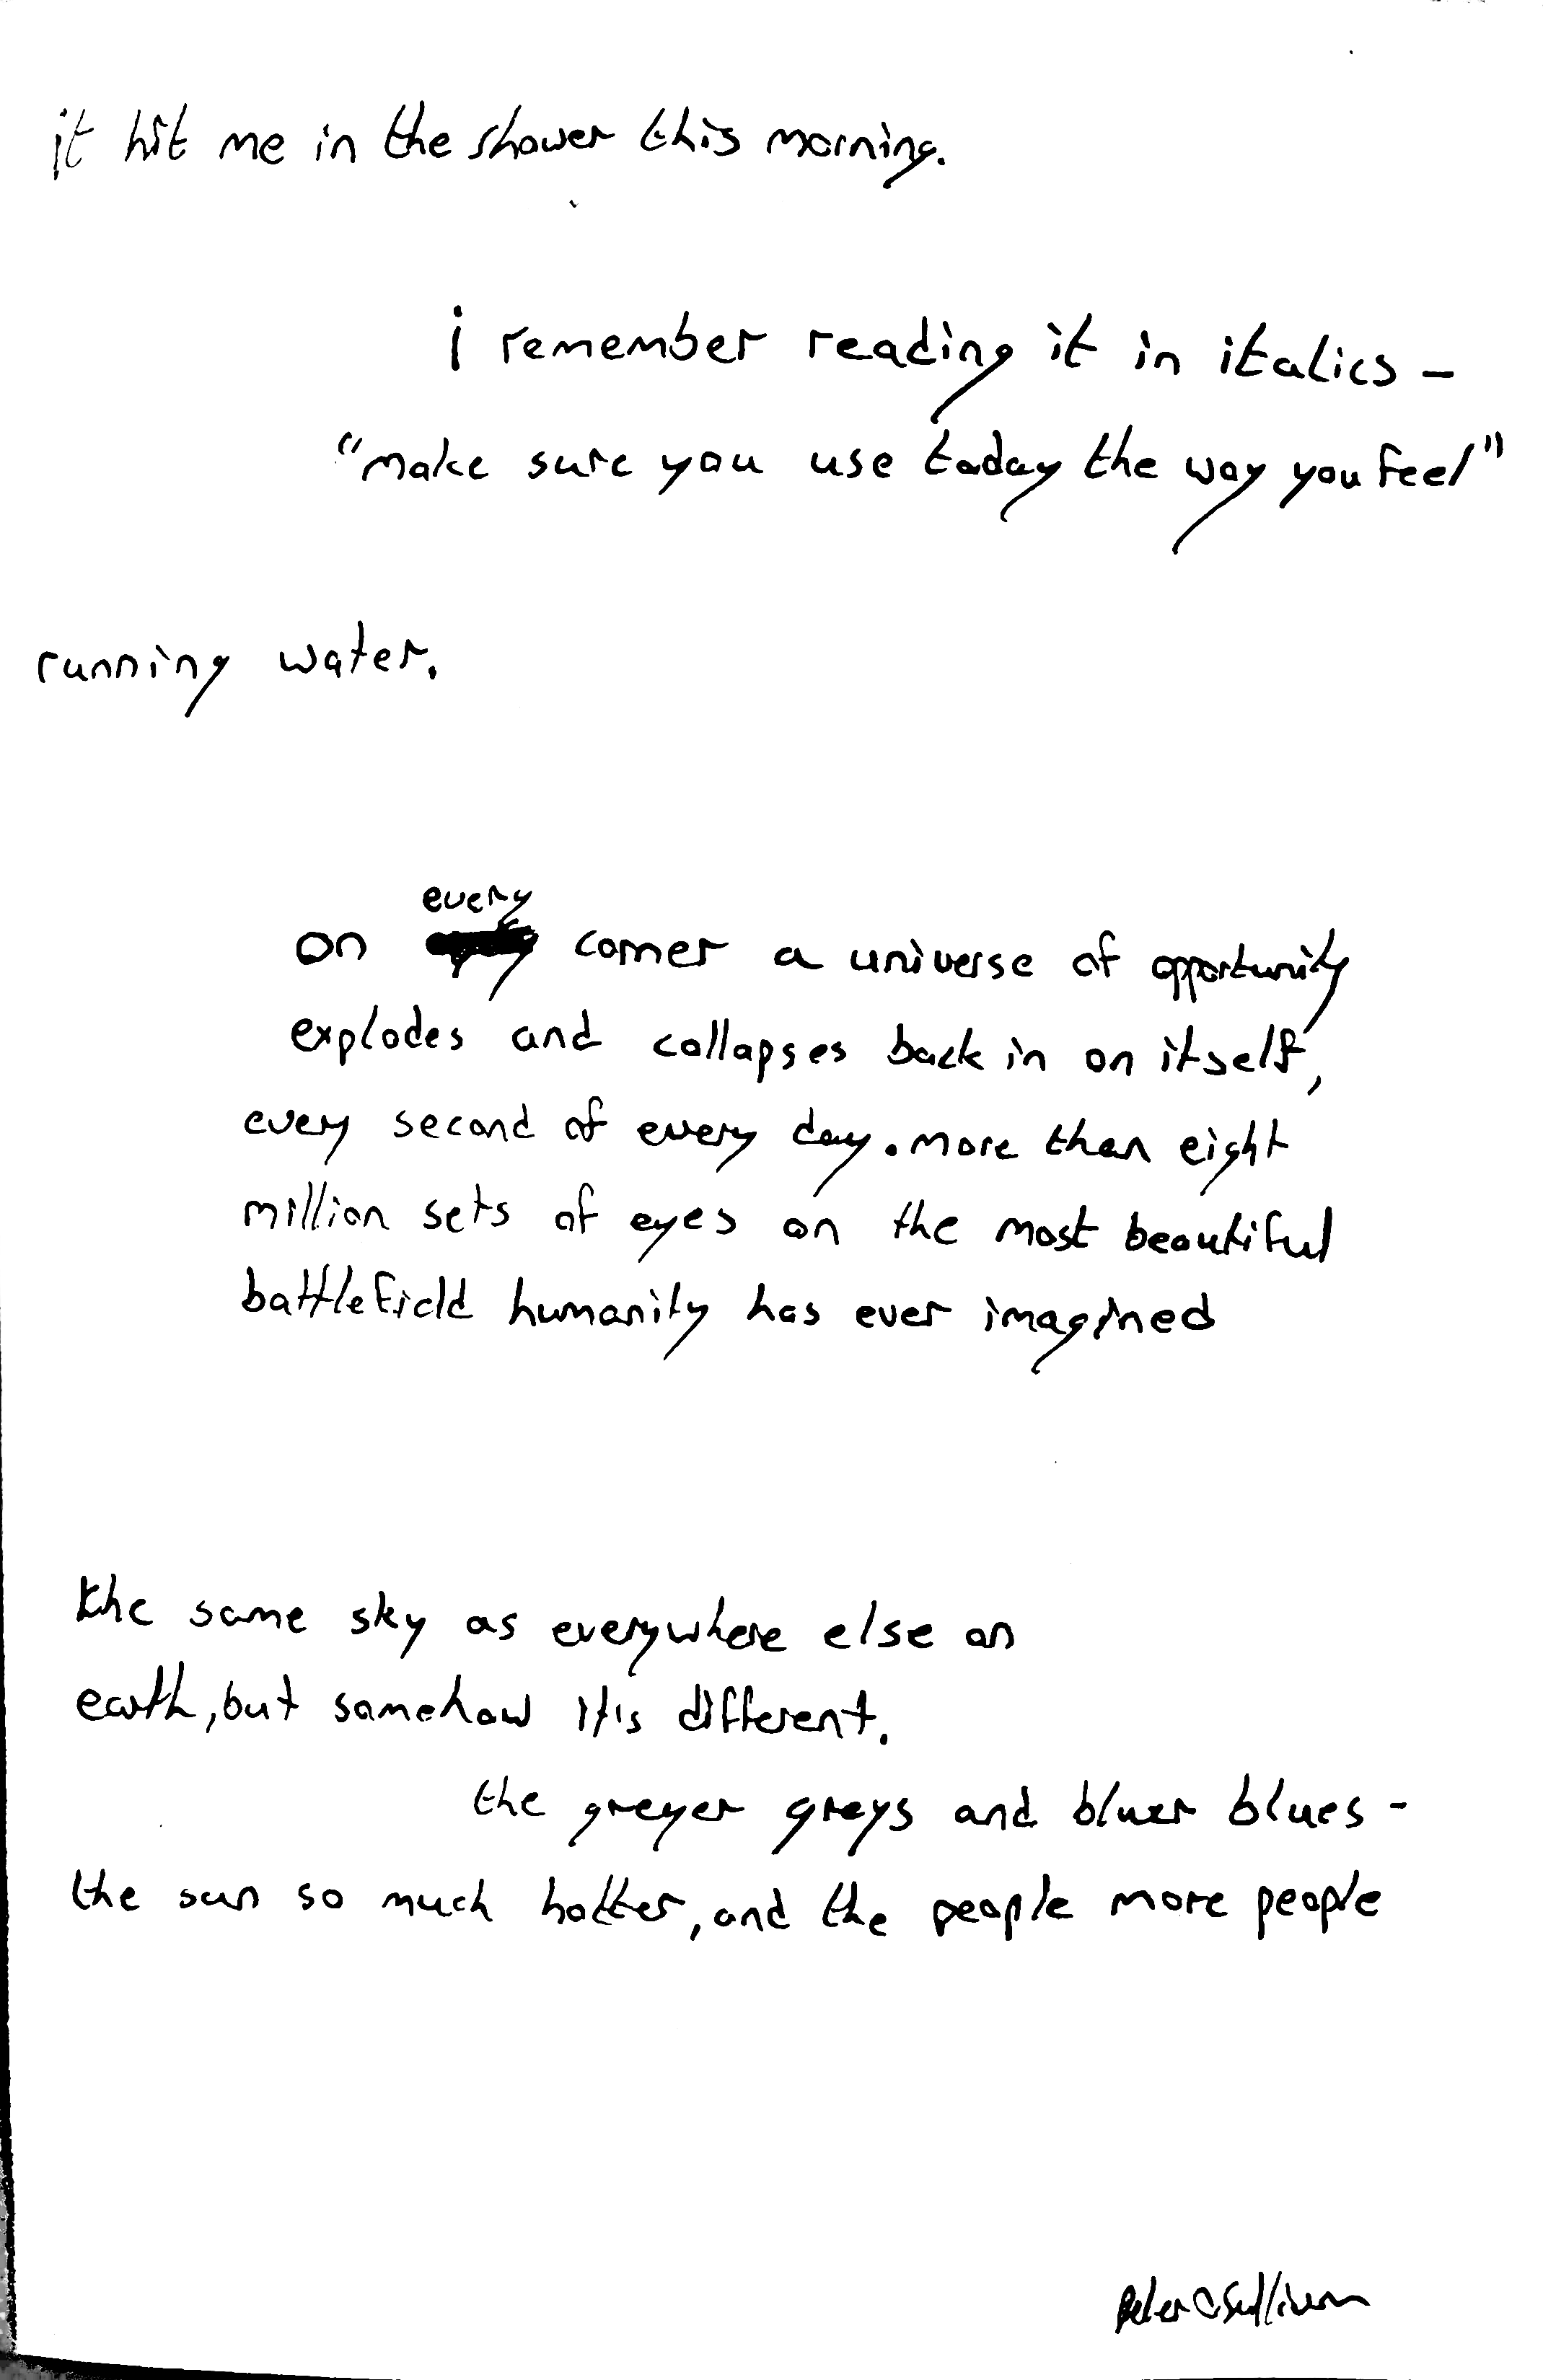 it hit me in the shower this morning.
i remember reading it in italics -
"make sure you use today the way you feel"
running water.
every
on corner a universe of opportunity
explodes and collapses back in on itself,
every second of every day. more than eight
million sets of eyes on the most beautiful
battlefield humanity has ever imagined
the same sky as everywhere else on
earth, but somehow it's different.
the greyer greys and bluer blues -
the sun so much hotter, and the people more people
Peter O'Sullivan